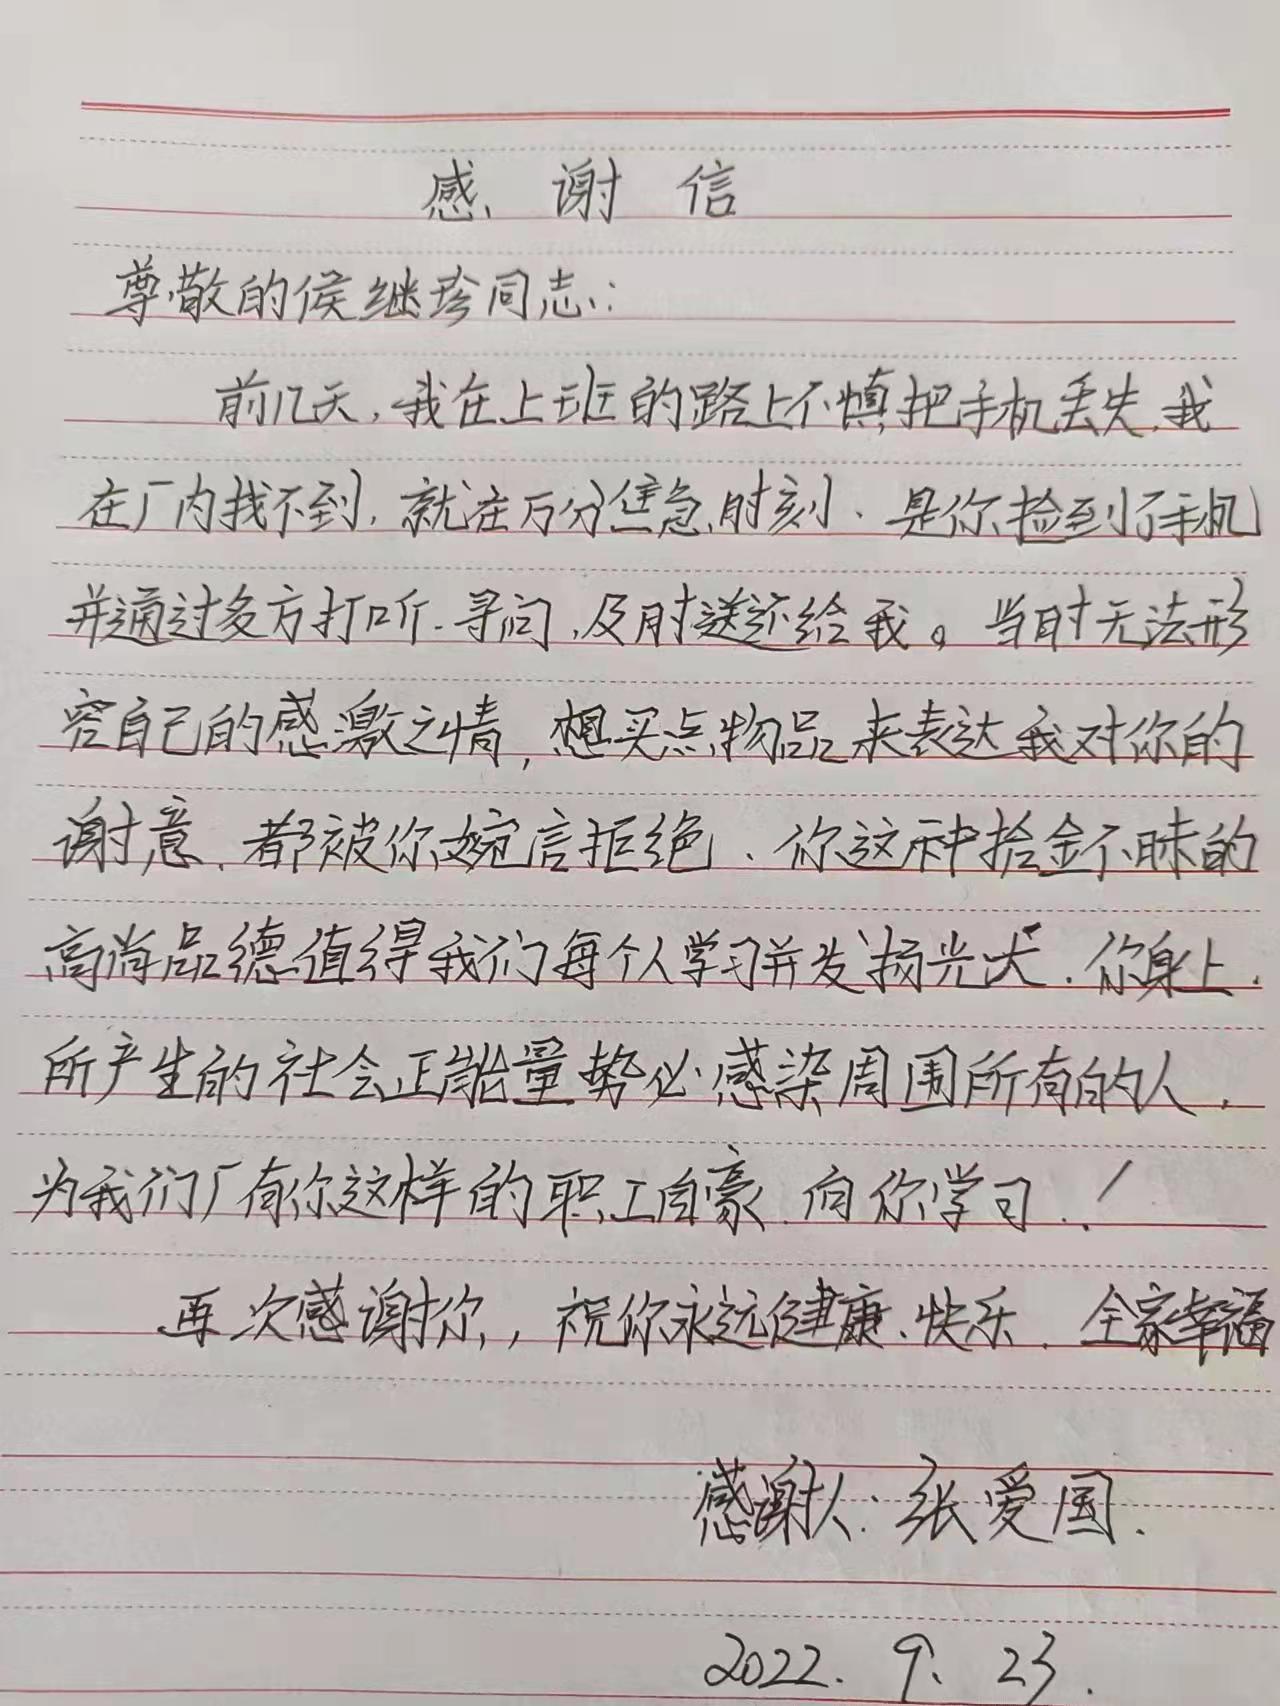 感谢信
尊敬的侯继珍同志:
前几天,我在上班的路上不慎把手机丢失,我
在厂内找不到,就在万分焦急时刻、是你捡到了手机
并通过多方打听、寻问,及时送还给我。当时无法形
容自己的感激之情,想买点物品来表达我对你的
谢意、都被你婉言拒绝、你这种拾金不昧的
高尚品德值得我们每个人学习并发扬光大、你身上、
所产生的社会正能量势必感染周围所有的人,
为我们厂有你这样的职工自豪、向你学习!
再次感谢你,祝你永远健康、快乐、全家幸福
感谢人:张爱国.
2022.9.23.